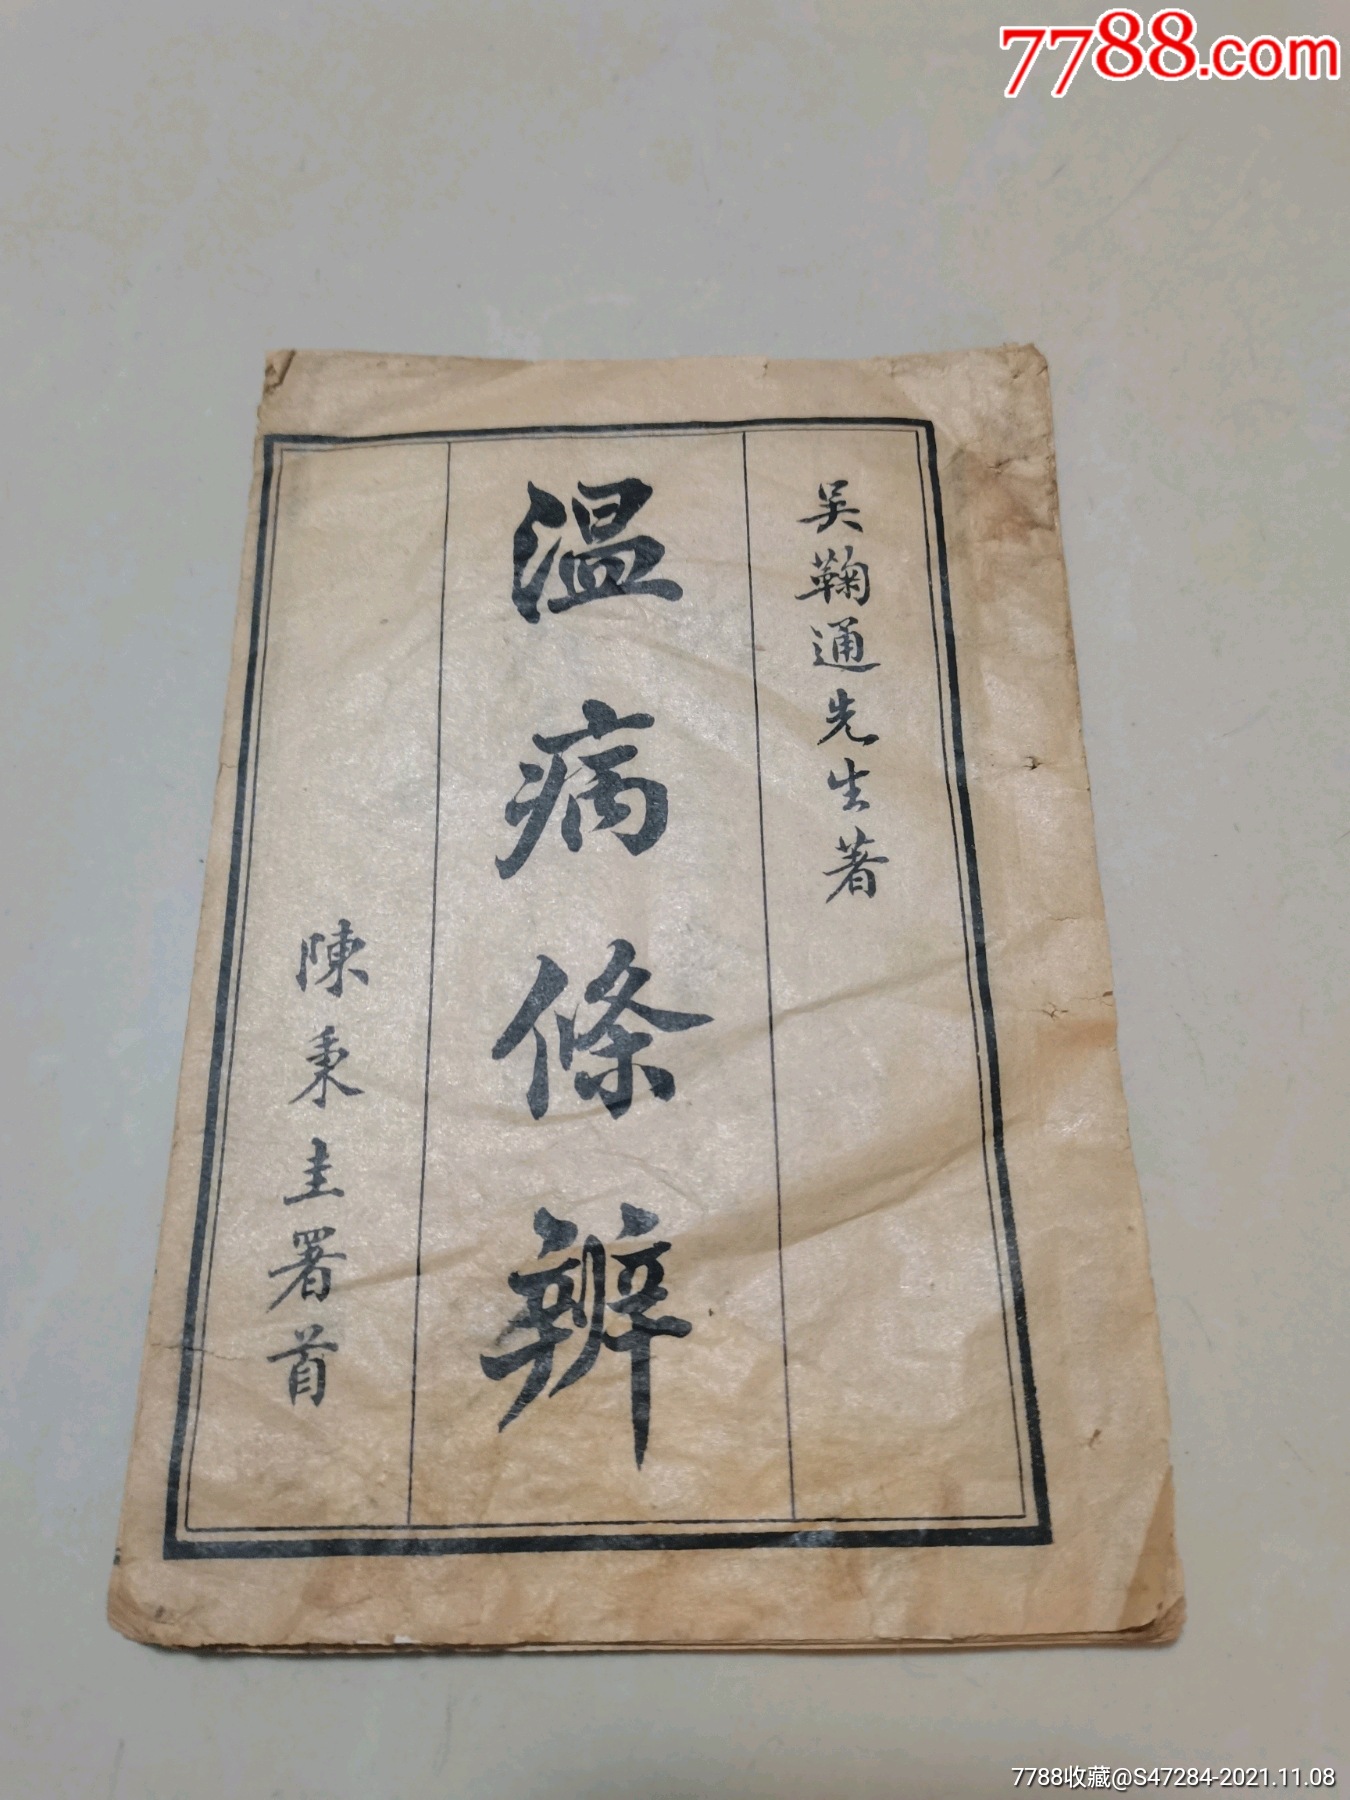 7788.com
吴鞠通先生著
温病條辨
陳秉圭署首
7788收藏@S47284-2021.11.08